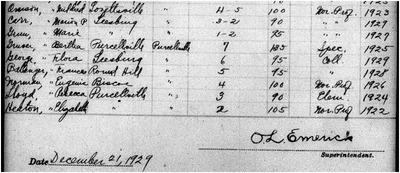 " Lovettsville " 4-5 100 Nor. Prof. 1923
Carr, " Leesburg " 3-2 90 " 1927
" Marie " " 1-2 95 " 1927
" Bertha Purcellville Purcellville 7 185 Spec. 1925
George, " Flora Leesburg " 6 95 Coll. 1929
" Frances Round Hill " 5 95 " 1928
" Eugenia " 4 100 Nor. Prof. 1926
Lloyd, " Rebecca Purcellville " 3 90 Elem. 1924
" Elizabeth " " 2 105 Nor. Prof. 1922
O. L. Emerick
Superintendent.
Date December 21, 1929